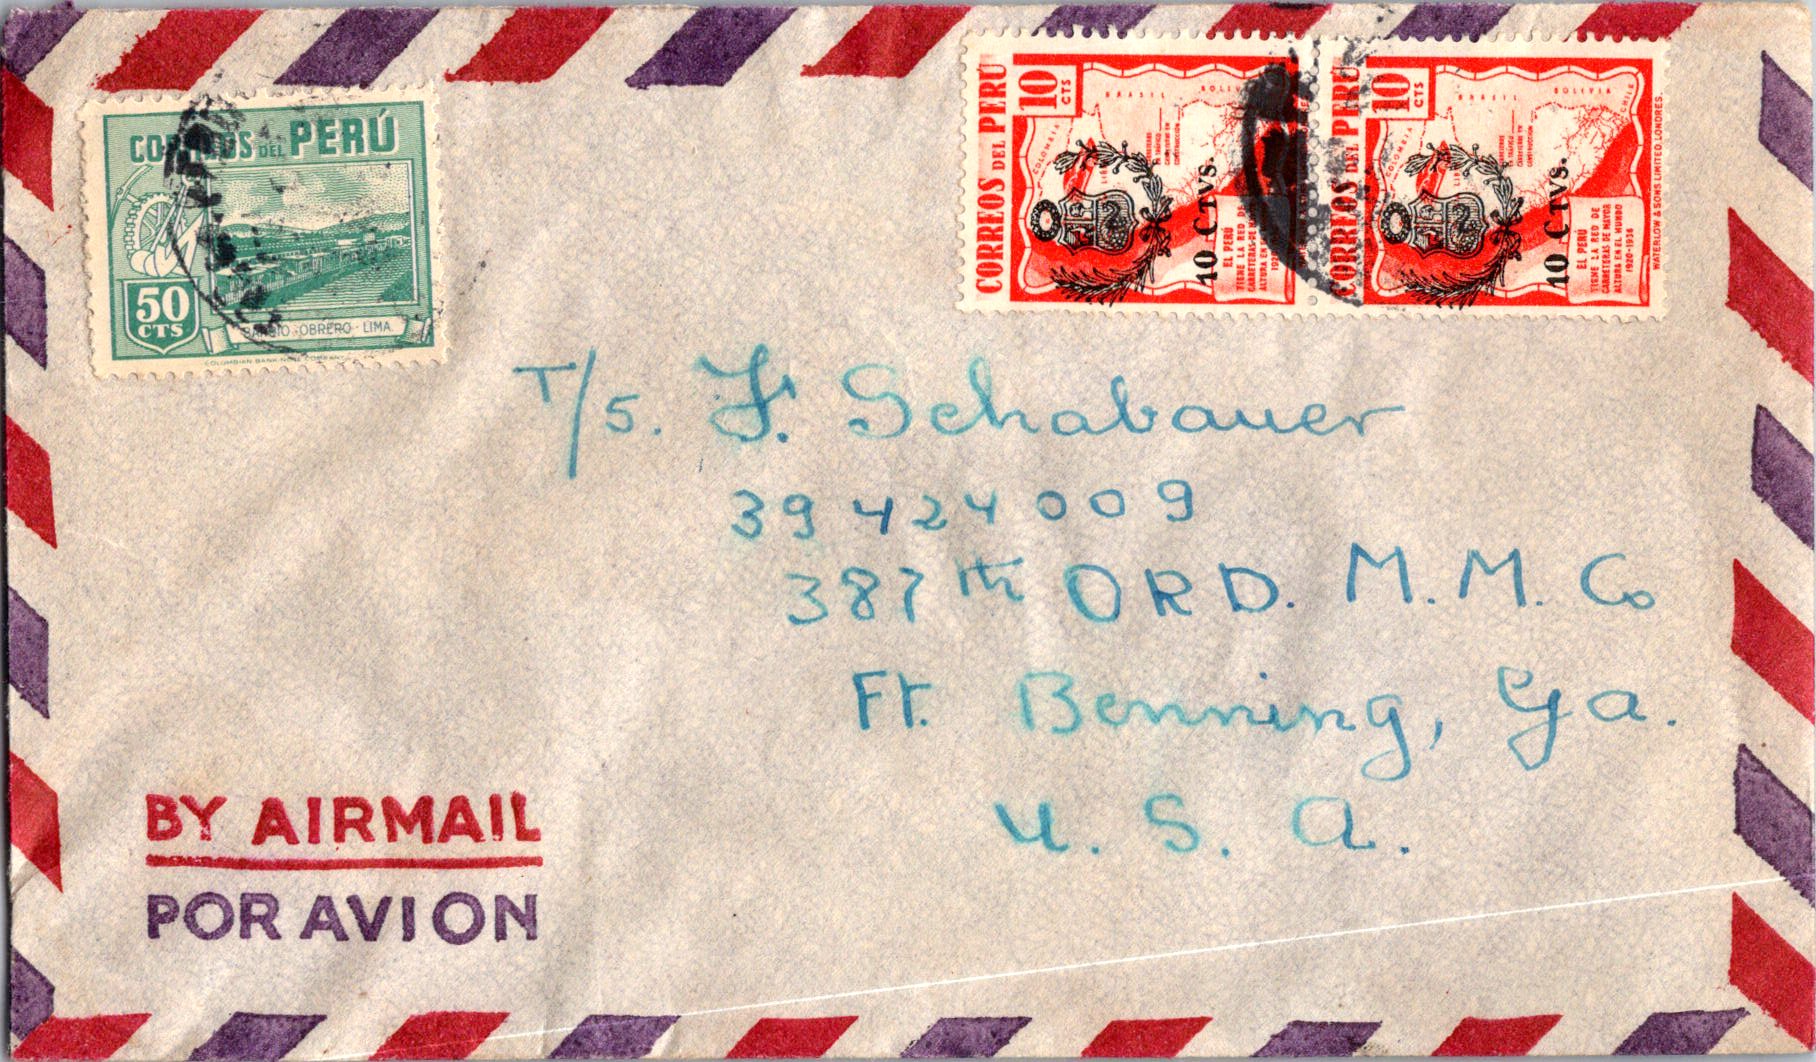 CORREOS DEL PERÚ
50
CTS
BARRIO · OBRERO · LIMA
COLOMBIAN BANK NOTE COMPANY
CORREOS DEL PERU
10
CTS
COLOMBIA
BRASIL
BOLIVIA
10 CTVS.
EL PERÚ
TIENE LA RED DE
CARRETERAS DE MAYOR
ALTURA EN EL MUNDO
CORREOS DEL PERU
10
CTS
COLOMBIA
BRASIL
BOLIVIA
CHILE
10 CTVS.
EL PERÚ
TIENE LA RED DE
CARRETERAS DE MAYOR
ALTURA EN EL MUNDO
1920-1936
WATERLOW & SONS LIMITED. LONDRES.
T/5. F. Schabauer
39424009
387th ORD. M. M. Co
Ft. Benning, Ga.
U. S. A.
BY AIRMAIL
POR AVION